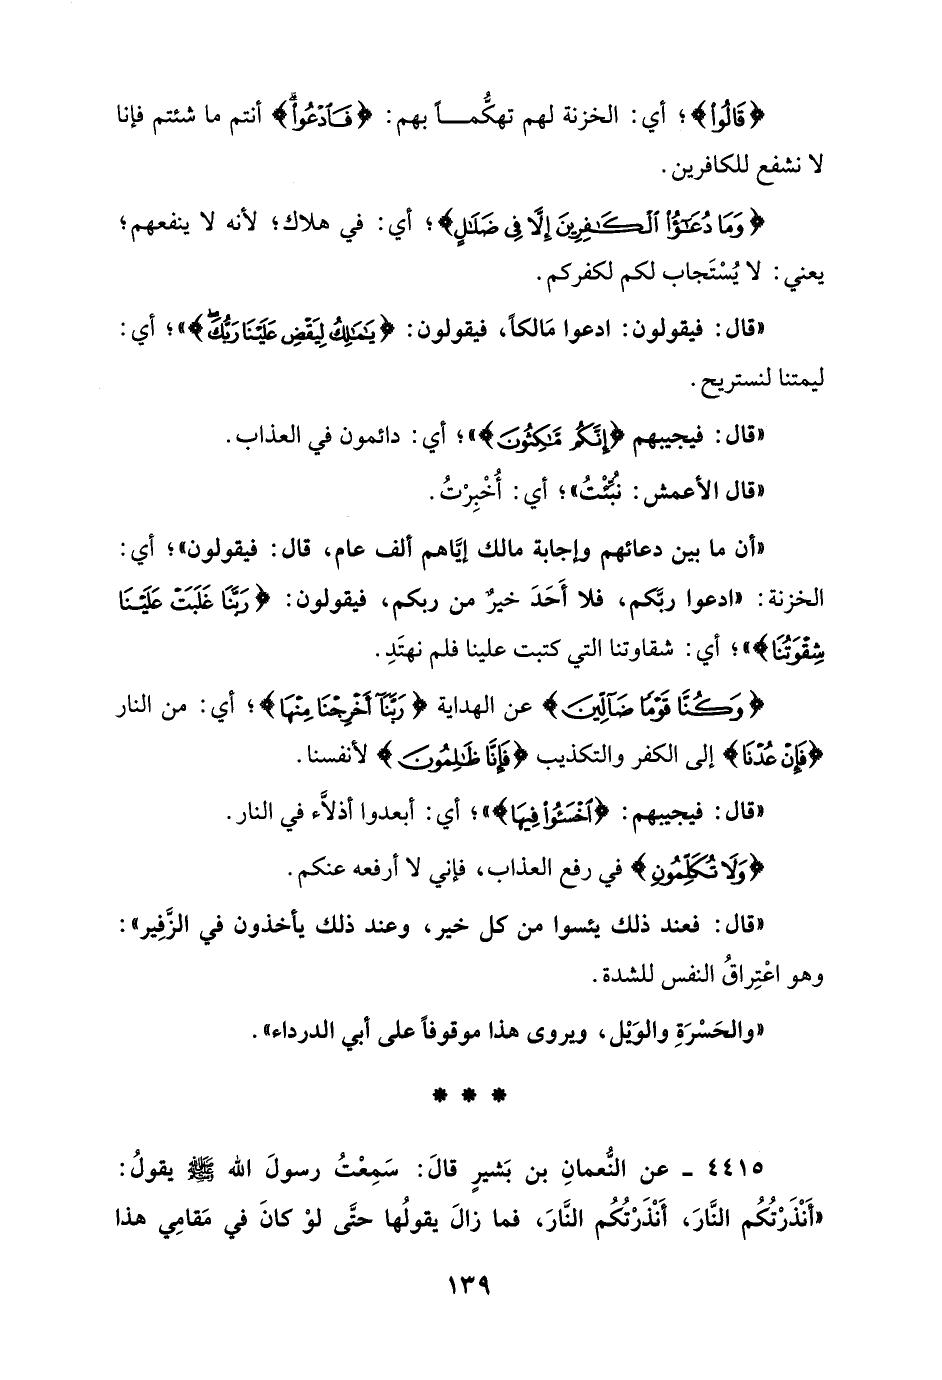 ﴿قَالُواْ﴾؛ أي: الخزنة لهم تهكُّمـــاً بهم: ﴿فَٱدْعُواْۗ﴾ أنتم ما شئتم فإنا
لا نشفع للكافرين.
﴿وَمَا دُعَٰٓؤُاْ ٱلْكَٰفِرِينَ إِلَّا فِى ضَلَٰلٍ﴾؛ أي: في هلاك؛ لأنه لا ينفعهم؛
يعني: لا يُسْتَجاب لكم لكفركم.
«قال: فيقولون: ادعوا مَالكاً، فيقولون: ﴿يَٰمَٰلِكُ لِيَقْضِ عَلَيْنَا رَبُّكَۖ﴾»؛ أي:
ليمتنا لنستريح.
«قال: فيجيبهم ﴿إِنَّكُم مَّٰكِثُونَ﴾»؛ أي: دائمون في العذاب.
«قال الأعمش: نُبِّئْتُ»؛ أي: أُخْبِرْتُ.
«أن ما بين دعائهم وإجابة مالك إيَّاهم ألف عام، قال: فيقولون»؛ أي:
الخزنة: «ادعوا ربَّكم، فلا أَحَدَ خيرٌ من ربكم، فيقولون: ﴿رَبَّنَا غَلَبَتْ عَلَيْنَا
شِقْوَتُنَا﴾»؛ أي: شقاوتنا التي كتبت علينا فلم نهتَدِ.
﴿وَكُنَّا قَوْمًا ضَآلِّينَ﴾ عن الهداية ﴿رَبَّنَآ أَخْرِجْنَا مِنْهَا﴾؛ أي: من النار
﴿فَإِنْ عُدْنَا﴾ إلى الكفر والتكذيب ﴿فَإِنَّا ظَٰلِمُونَ﴾ لأنفسنا.
«قال: فيجيبهم: ﴿ٱخْسَـُٔواْ فِيهَا﴾»؛ أي: أبعدوا أذلاَّء في النار.
﴿وَلَا تُكَلِّمُونِ﴾ في رفع العذاب، فإني لا أرفعه عنكم.
«قال: فعند ذلك يئسوا من كل خير، وعند ذلك يأخذون في الزَّفِير»:
وهو اعْتِراقُ النفس للشدة.
«والحَسْرَةِ والوَيْل، ويروى هذا موقوفاً على أبي الدرداء».
* * *
٤٤١٥ ـ عن النُّعمانِ بن بَشيرٍ قالَ: سَمِعْتُ رسولَ الله ﷺ يقولُ:
«أَنْذَرْتُكُم النَّارَ، أَنْذَرْتُكُم النَّارَ، فما زالَ يقولُها حتَّى لوْ كانَ في مَقامِي هذا
١٣٩